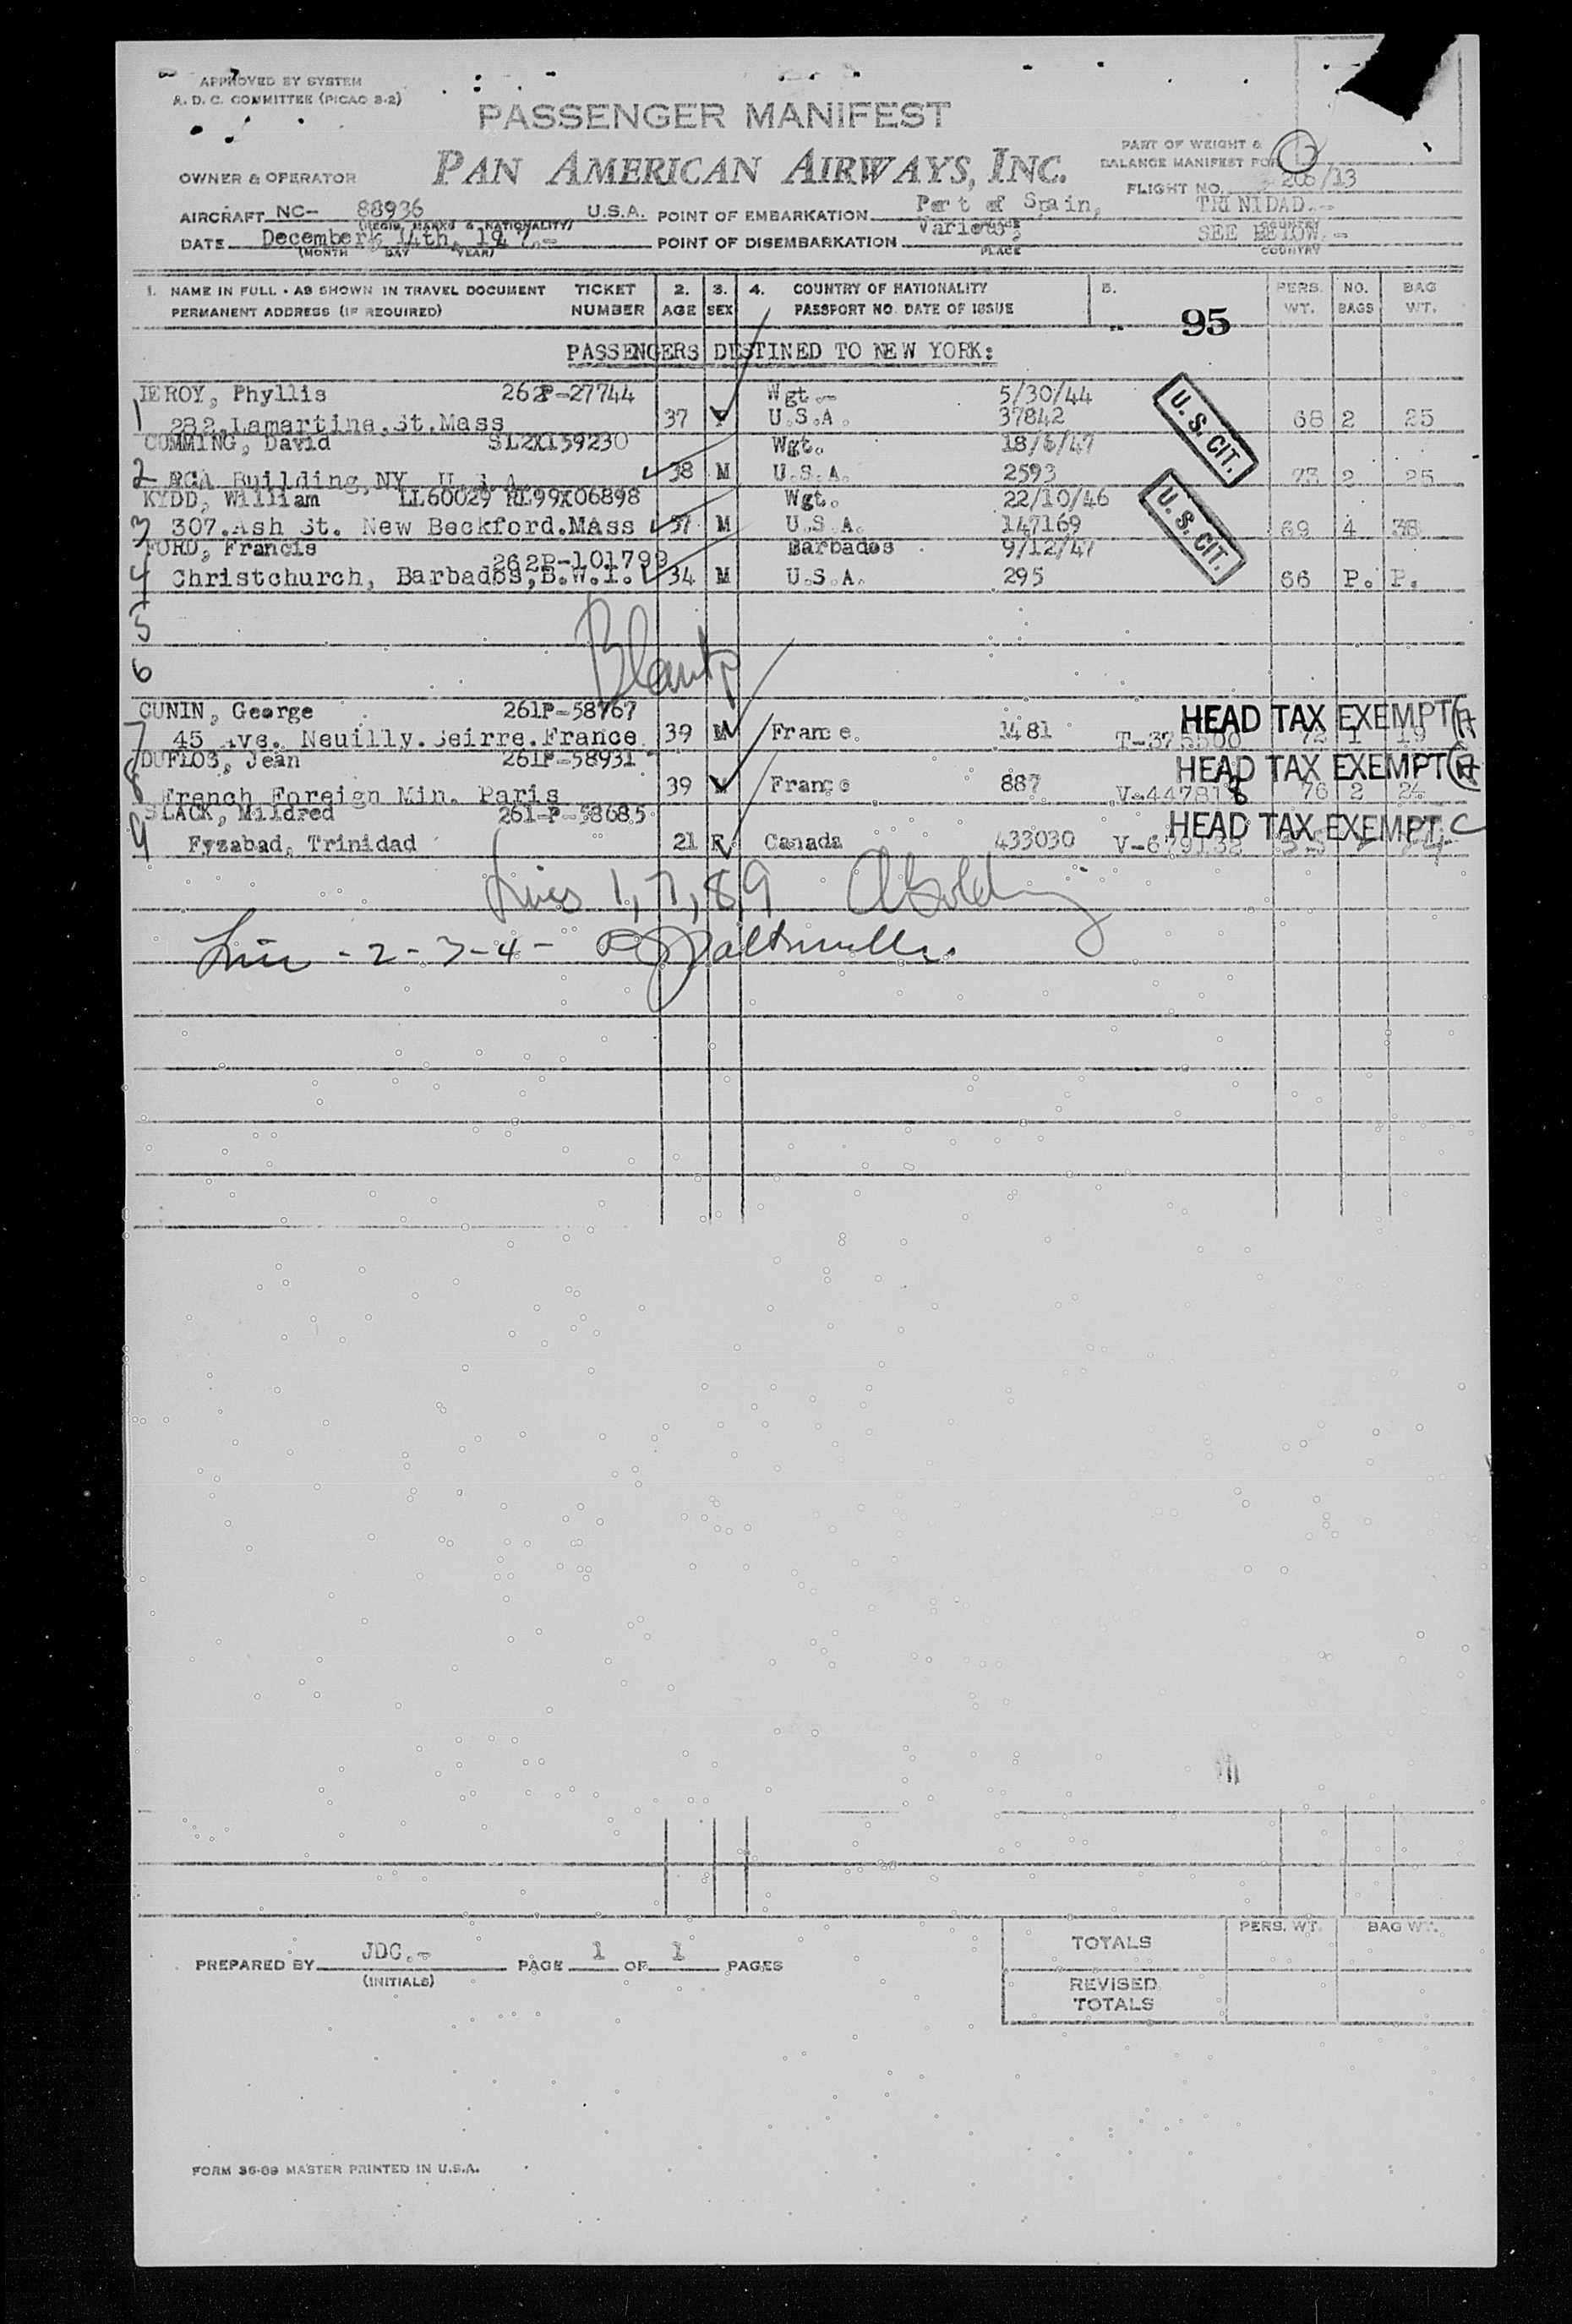 APPROVED BY SYSTEM
A. D. C. COMMITTEE (PICAO 3-2)
PASSENGER MANIFEST
PART OF WEIGHT &
BALANCE MANIFEST FOR
OWNER & OPERATOR
PAN AMERICAN AIRWAYS, INC.
FLIGHT NO. 206/13
AIRCRAFT NC- 88936 U.S.A. POINT OF EMBARKATION Port of Spain, TRINIDAD.-
(REGIS. MARKS & NATIONALITY)
DATE December 14th, 1947.- POINT OF DISEMBARKATION Various SEE BELOW.-
(MONTH DAY YEAR) PLACE COUNTRY
1. NAME IN FULL - AS SHOWN IN TRAVEL DOCUMENT TICKET 2. 3. 4. COUNTRY OF NATIONALITY 5. PERS. NO. BAG
PERMANENT ADDRESS (IF REQUIRED) NUMBER AGE SEX PASSPORT NO. DATE OF ISSUE 95 WT. BAGS WT.
PASSENGERS DESTINED TO NEW YORK:
LEROY, Phyllis 262P-27744 Wgt.- 5/30/44
1 282.Lamartine.St.Mass 37 F U.S.A. 37842 U. S. CIT. 68 2 25
CUMMING, David SL2X159230 Wgt. 18/6/47
2 RCA Building,NY U.S.A. 38 M U.S.A. 2593 73 2 25
KYDD, William LL60029 RL99X06898 Wgt. 22/10/46
3 307.Ash St. New Beckford.MAss 57 M U.S.A. 147169 U. S. CIT. 69 4 38
FORD, Francis 262P-101799 Barbados 9/12/47
4 Christchurch, Barbados,B.W.I. 34 M U.S.A. 295 66 P. P.
5
6
Blank
CUNIN, George 261P-58767 HEAD TAX EXEMPT A
7 45 Ave. Neuilly.Seirre.France 39 M France. 1481 72 1 19
DUFLOS, Jean 261P-58931 HEAD TAX EXEMPT A
8 French Foreign Min. Paris 39 M France 887 V-447818 76 2 24
SLACK, Mildred 261-P-58685 HEAD TAX EXEMPT C
9 Fyzabad, Trinidad 21 F Canada 433030 V-679132
Lines 1, 7, 8, 9
Line - 2 - 3 - 4 -
PERS. WT. BAG WT.
TOTALS
PREPARED BY JDC.- PAGE 1 OF 1 PAGES
(INITIALS)
REVISED
TOTALS
FORM 36-09 MASTER PRINTED IN U.S.A.